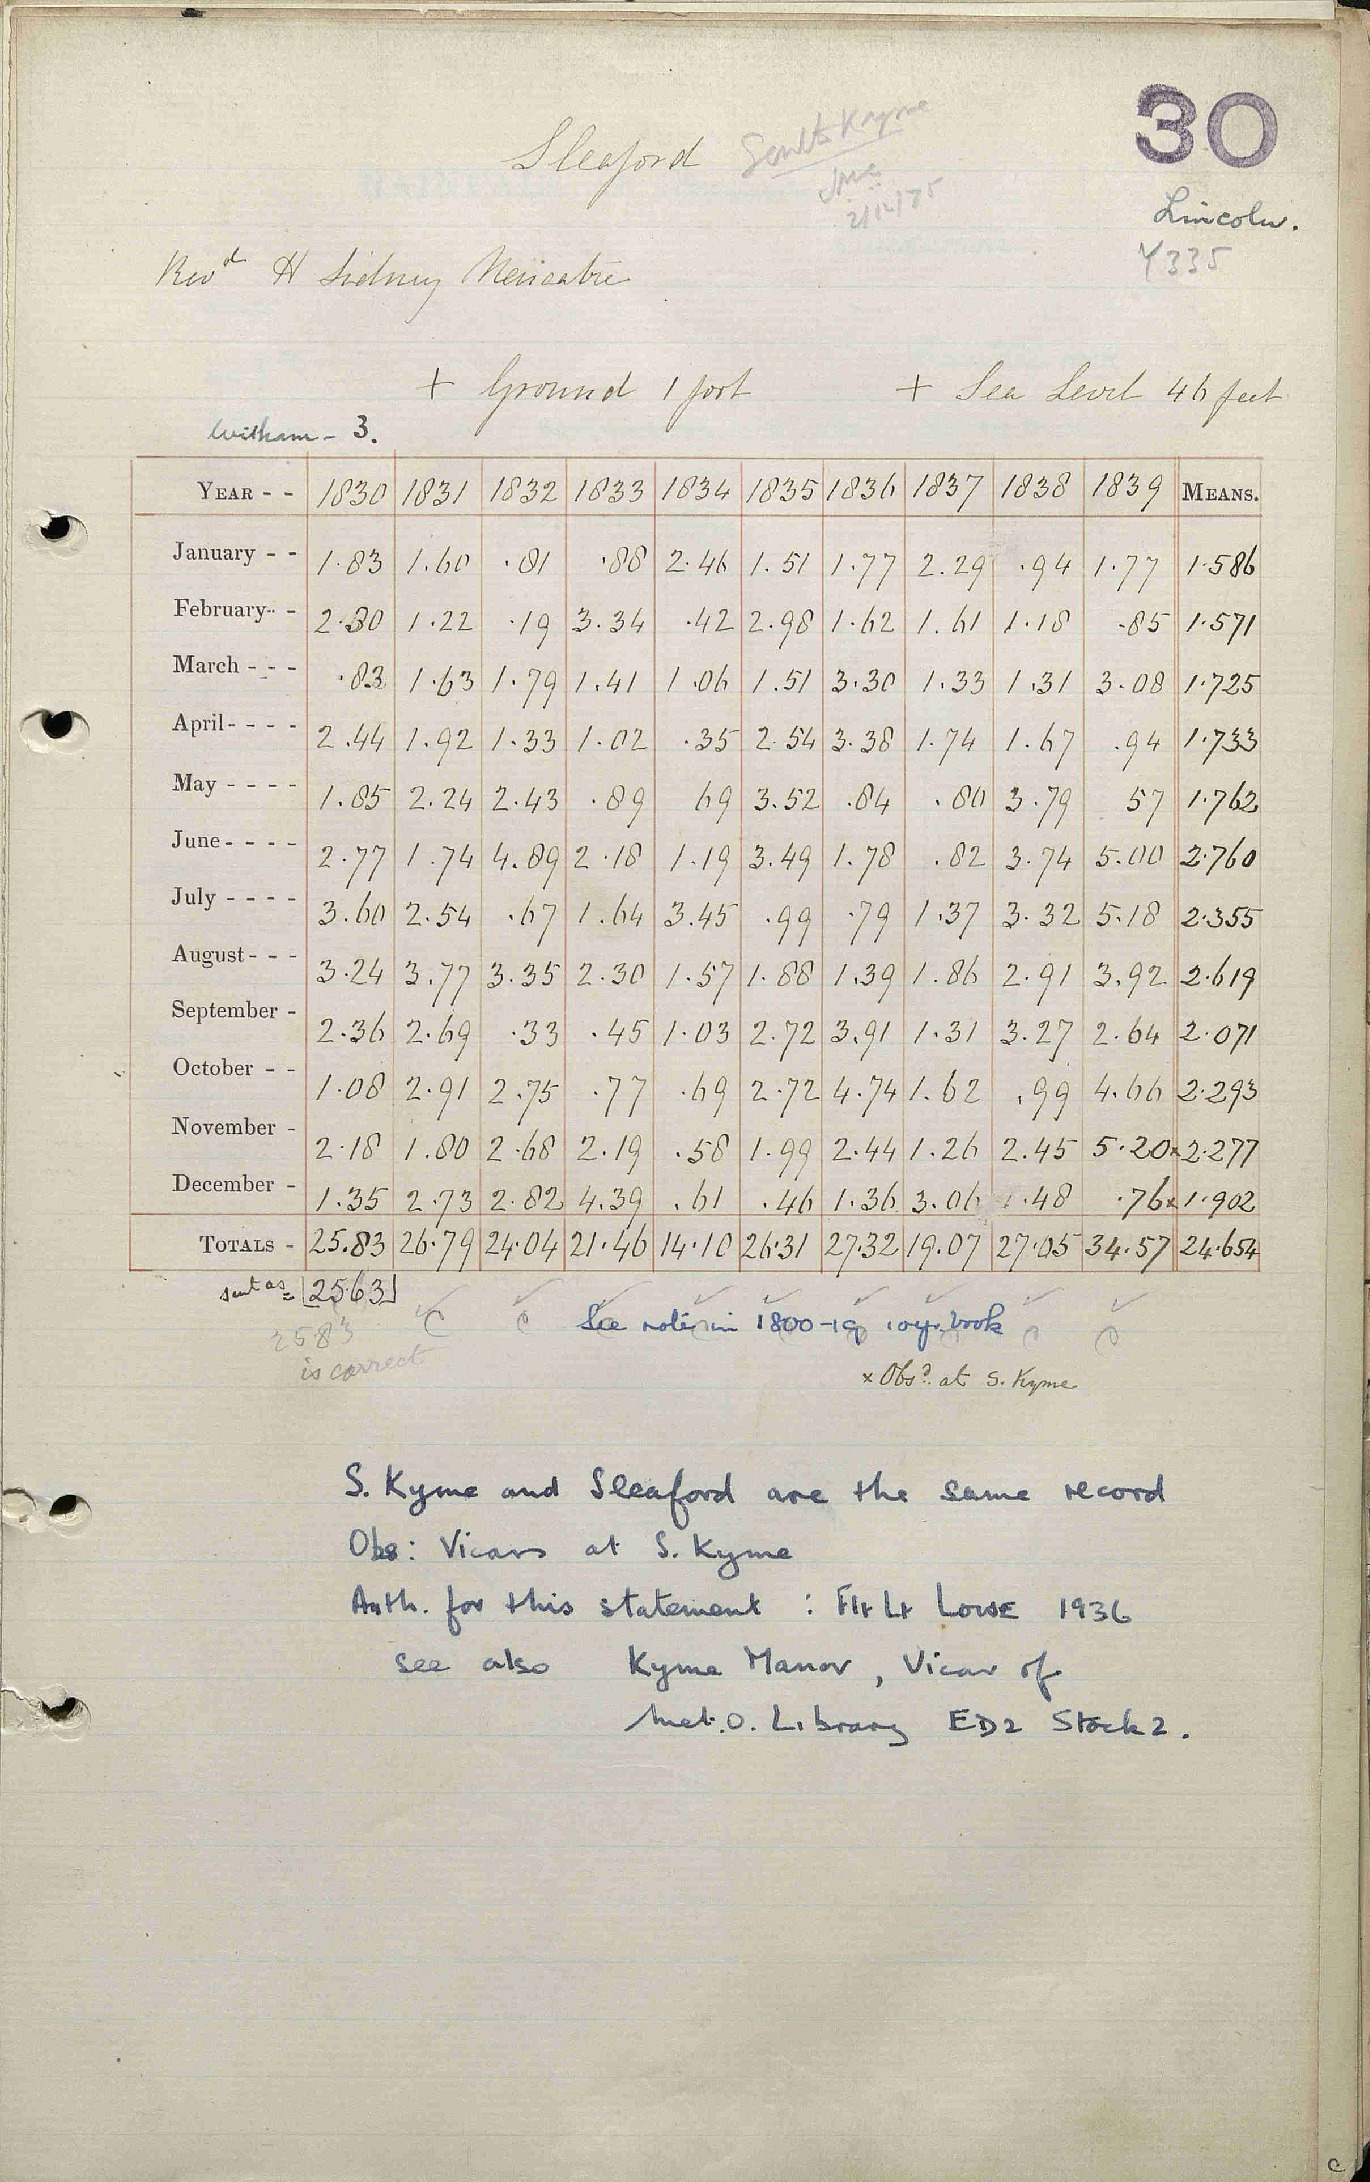 30
Sleaford South Kyme
2/12/75
Lincoln.
Y335
Revd H Sidney
+ Ground 1 foot + Sea Level 46 feet
Witham - 3.
YEAR - - 1830 1831 1832 1833 1834 1835 1836 1837 1838 1839 MEANS.
January - - 1.83 1.60 .81 .88 2.46 1.51 1.77 2.29 .94 1.77 1.586
February - - 2.30 1.22 .19 3.34 .42 2.98 1.62 1.61 1.18 .85 1.571
March - - - .83 1.63 1.79 1.41 1.06 1.51 3.30 1.33 1.31 3.08 1.725
April - - - - 2.44 1.92 1.33 1.02 .35 2.54 3.38 1.74 1.67 .94 1.733
May - - - - 1.85 2.24 2.43 .89 69 3.52 .84 .80 3.79 57 1.762
June - - - - 2.77 1.74 4.89 2.18 1.19 3.49 1.78 .82 3.74 5.00 2.760
July - - - - 3.60 2.54 .67 1.64 3.45 .99 .79 1.37 3.32 5.18 2.355
August - - - 3.24 3.77 3.35 2.30 1.57 1.88 1.39 1.86 2.91 3.92 2.619
September - 2.36 2.69 .33 .45 1.03 2.72 3.91 1.31 3.27 2.64 2.071
October - - 1.08 2.91 2.75 .77 .69 2.72 4.74 1.62 .99 4.66 2.293
November - 2.18 1.80 2.68 2.19 .58 1.99 2.44 1.26 2.45 5.20x 2.277
December - 1.35 2.73 2.82 4.39 .61 .46 1.36 3.06 1.48 .76x 1.902
TOTALS - 25.83 26.79 24.04 21.46 14.10 26.31 27.32 19.07 27.05 34.57 24.654
sent as = [25.63]
2583
is correct
See note in 1800-19 10yr. book
x Obs? at S. Kyme
S. Kyme and Sleaford are the same record
Obs: Vicars at S. Kyme
Auth. for this statement : Flt Lt LOWE 1936
see also Kyme Manor, Vicar of
Met. O. Library ED2 Stack 2.